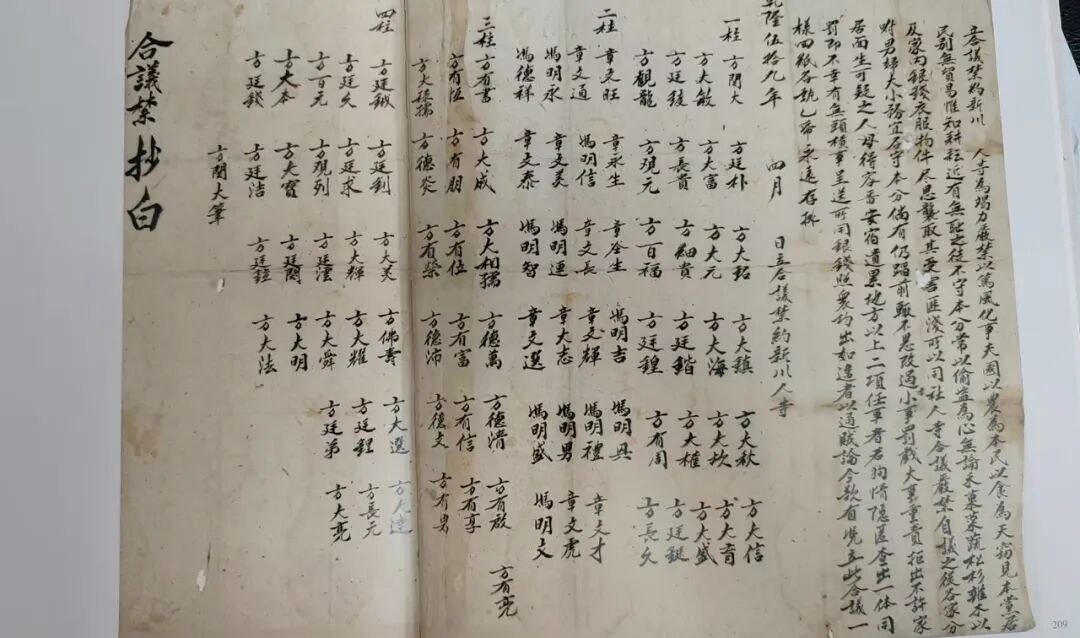 立合議禁約新川 人等為竭力嚴禁以篤風化事夫國以農為本民以食為天窃見本黨居
民別無貿易惟知耕耘近有無耻之徒不守本分常以偷盗為心無論禾東菜蔬松杉雜木以
及家内銀錢衣服物件尽思襲取其受害匪淺可以同社人等合議嚴禁自議之後各家分
咐男婦大小務宜各守本分倘有仍蹈前轍不思改過小事罰戲大事重責拒出不許家
居面生可疑之人毋得容畨安宿遺累地方以上二項任事者若狥情隱匿查出一体同
罰即不幸有無頭横事呈送所用銀錢照衆約出如違者以通賊論今欲有凴立此合議一
樣四帋各執乙帋永遠存照
乾隆伍拾九年 四月 日立合議禁約新川人等
一柱 方閏大 方廷朴 方大玿 方大鎮 方大秋 方大信
方大敏 方大富 方大元 方大海 方大坎 方大育
方廷綾 方長貴 方細貴 方廷鍇 方大權 方大盛
方觀龍 方观元 方百福 方廷鍠 方有周 方廷鋌
方長久
二柱 章文旺 章永生 章全生 馮明吉 馮明兴 章文才
章文通 馮明信 章文長 章文輝 馮明禮 章文虎
馮明永 章文美 馮明運 章大志 馮明男 馮明文
馮德祥 章文泰 馮明智 章文選 馮明盛
三柱 方有書 方大成 方大相孺 方德萬 方德清 方有啟 方有亮
方有恆 方有朋 方有位 方有富 方有信 方有享
方大禄孺 方德炎 方有榮 方德沛 方德文 方有男
四柱 方廷鉞 方廷釗 方大美 方佛壽 方大選 方大達
方廷久 方廷求 方大輝 方大耀 方廷鋰 方長元
方百元 方观列 方廷法 方大舜 方廷弟 方大亮
方大本 方大寶 方廷閏 方大明
方廷錢 方廷洁 方廷鉦 方大法
方閏大筆
合議禁抄白
209